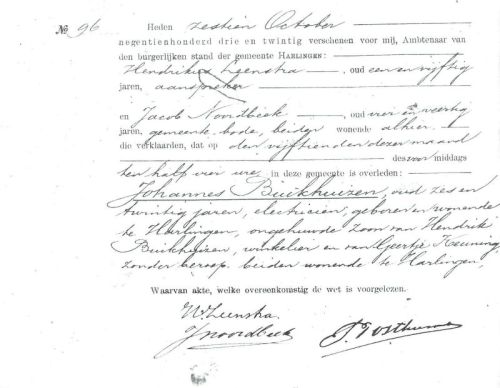 № 96
Heden zestien October
negentienhonderd drie en twintig verschenen voor mij, Ambtenaar van
den burgerlijken stand der gemeente HARLINGEN:
Hendrikus Leenstra, oud een en vijftig
jaren, aanspreker
en Jacob Noordbeek, oud vier en veertig
jaren, gemeente bode, beiden wonende alhier
die verklaarden, dat op den vijftienden dezer maand
des voor middags
ten half vier ure in deze gemeente is overleden:
Johannes Buikhuizen, oud zes en
twintig jaren, electricien, geboren en wonende
te Harlingen, ongehuwde zoon van Hendrik
Buikhuizen, winkelier en van Geertje Keuning,
zonder beroep, beiden wonende te Harlingen,
Waarvan akte, welke overeenkomstig de wet is voorgelezen.
Leenstra
J Noordbeek